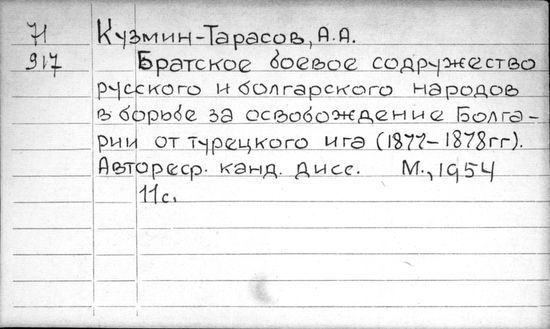 Л Кузмин-Тарасов, А.А.
917 Братское боевое содружество
русского и болгарского народов
в борьбе за освобождение Болга-
рии от турецкого ига (1877-1878гг).
Автореф. канд. дисс. М., 1954
11с.